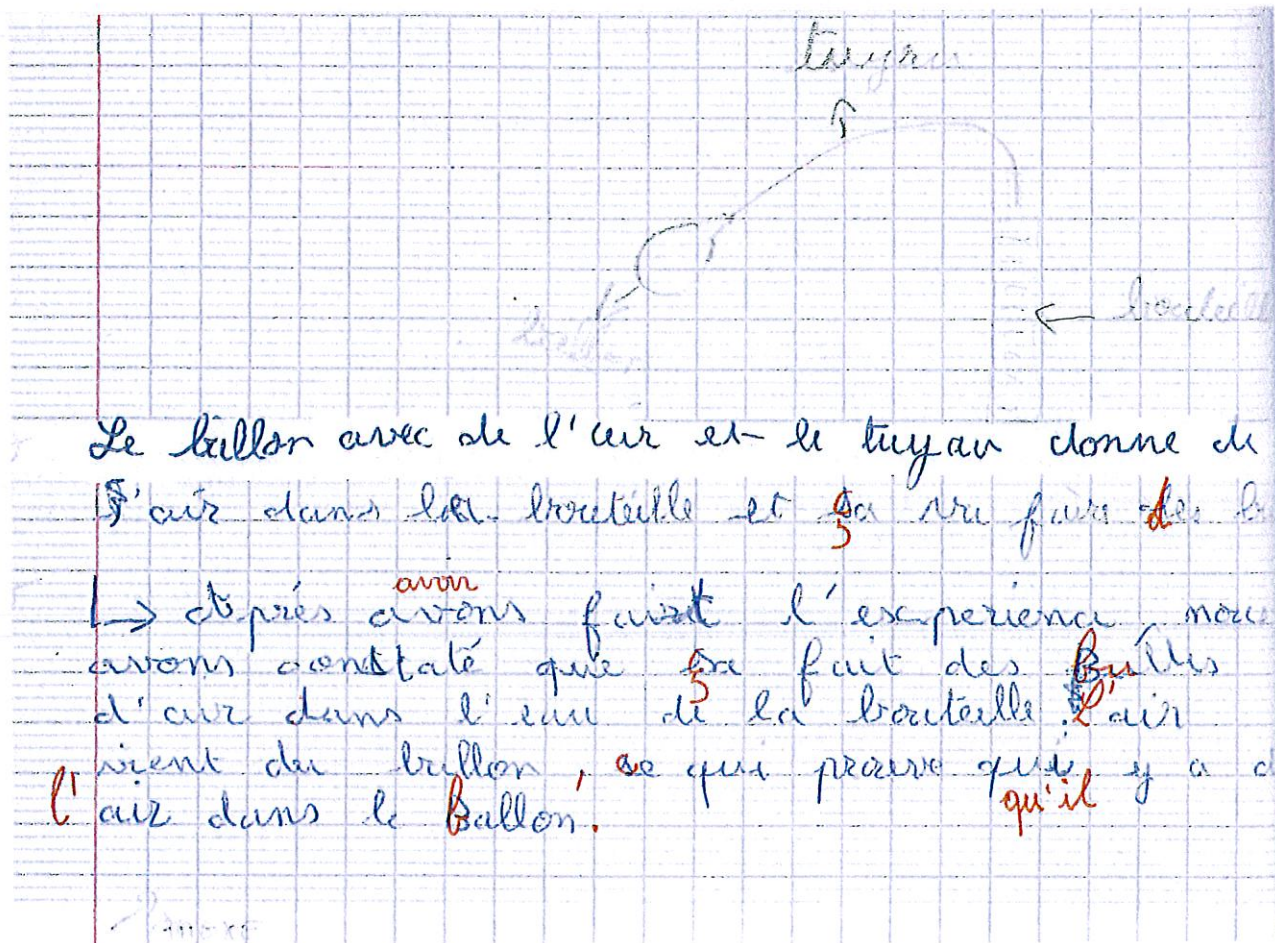 tuyau
ballon
bouteill
Le ballon avec de l'air et le tuyau donne de
l'air dans la bouteille et ça va faire des b
avoir
↳ Après avons fait l'experience nou
avons constaté que ça fait des Bulles
d'air dans l'eau de la bouteille. L'air
vient du ballon, ce qui prouve qui y a d
qu'il
l'air dans le Ballon.